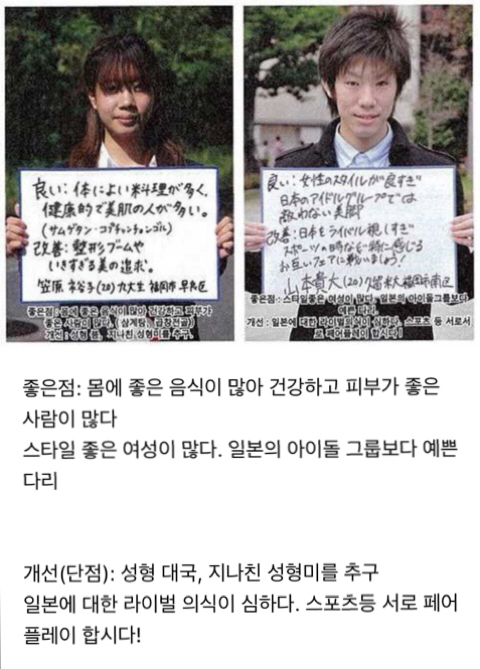 良い：体によい料理が多く、
健康的で美肌の人が多い。
(サムゲタン・コプチャンチョンゴル)
改善：整形ブームや
いきすぎる美の追求。
(20) 九大生 福岡市早良区
좋은점 : 몸에 좋은 음식이 많아 건강하고 피부가
좋은 사람이 많다. (삼계탕, 곱창전골)
개선 : 성형 붐, 지나친 성형미를 추구.
良い：女性のスタイルが良すぎ
日本のアイドルグループでは
敵わない美脚
改善：日本をライバル視しすぎ
スポーツの時などを特に感じる
お互いフェアに戦いましょう！
山本貴大(20) 久留米大 福岡市南区
좋은점 : 스타일좋은 여성이 많다. 일본의 아이돌그룹보다
예쁜 다리.
개선 : 일본에 대한 라이벌 의식이 심하다. 스포츠 등 서로서
로 페어플레이 합시다!
좋은점: 몸에 좋은 음식이 많아 건강하고 피부가 좋은
사람이 많다
스타일 좋은 여성이 많다. 일본의 아이돌 그룹보다 예쁜
다리
개선(단점): 성형 대국, 지나친 성형미를 추구
일본에 대한 라이벌 의식이 심하다. 스포츠등 서로 페어
플레이 합시다!